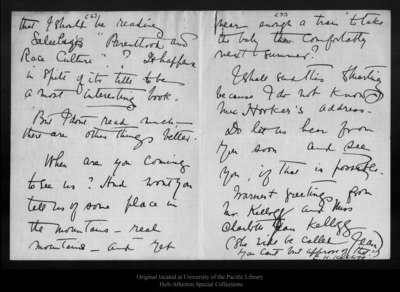 (3)
that I should be reading
Saleeby's "Parenthood and
Race Culture"? It happens
in spite of its title to be
a most interesting book.
But I dont read much,—
there are other things better.
When are you coming
to see us? And wont you
tell us of some place in
the mountains — real
mountains — and yet
near enough a train to take
the baby there comfortably
next summer?
I shall send this
because I do not know
Mrs. Hooker's address.
Do let us hear from
you soon and see
you, if that is possible.
Warmest greetings from
Mr. Kellogg and Miss
Charlotte Jean Kellogg
(She is to be called Jean)
you cant but approve of that
Original located at University of the Pacific Library
Holt-Atherton Special Collections